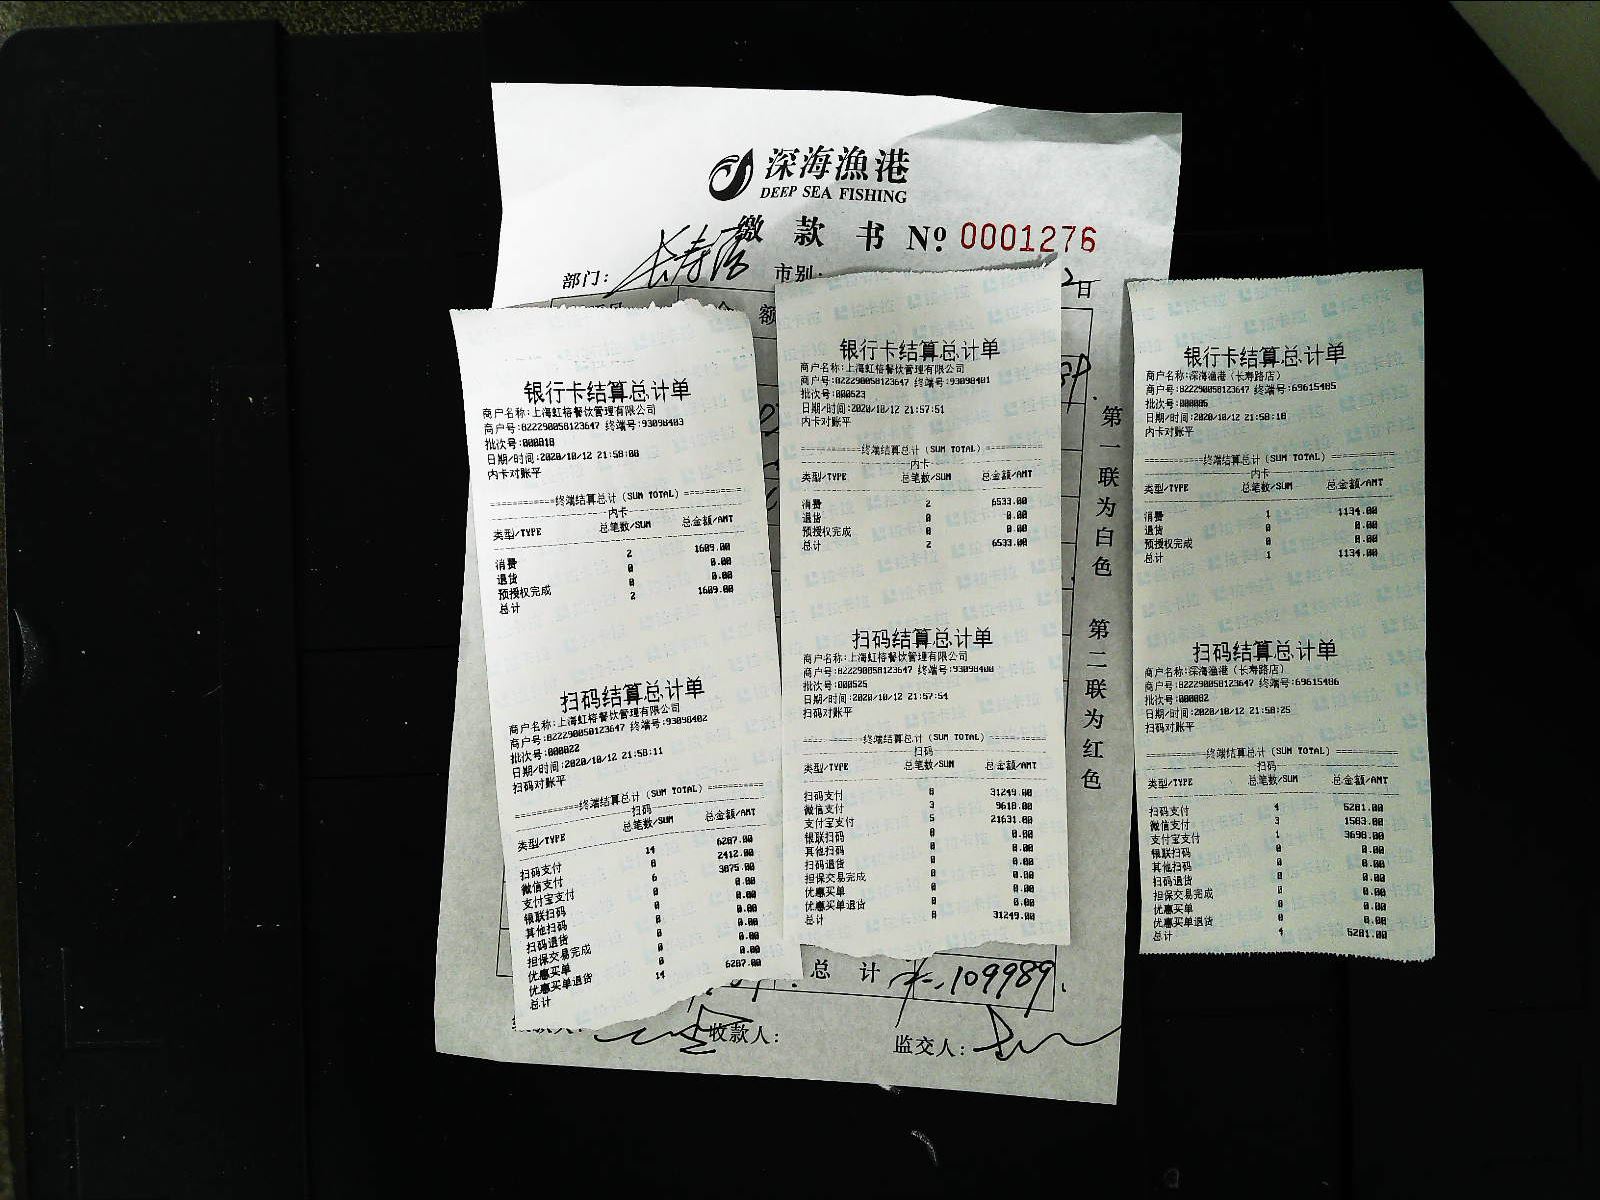 深海漁港
DEEP SEA FISHING
缴款书 Nº 0001276
部门: 长寿店 市别:
日
额
第一联为白色 第二联为红色
总计 109989
收款人: 监交人:
银行卡结算总计单
商户名称:上海虹榕餐饮管理有限公司
商户号:822290058123647 终端号:93098403
批次号:000818
日期/时间:2020/10/12 21:58:08
内卡对账平
============终端结算总计(SUM TOTAL)============
内卡
类型/TYPE 总笔数/SUM 总金额/AMT
消费 2 1609.00
退货 0 0.00
预授权完成 0 0.00
总计 2 1609.00
扫码结算总计单
商户名称:上海虹榕餐饮管理有限公司
商户号:822290058123647 终端号:93098402
批次号:000822
日期/时间:2020/10/12 21:58:11
扫码对账平
============终端结算总计(SUM TOTAL)============
扫码
类型/TYPE 总笔数/SUM 总金额/AMT
扫码支付 14 6287.00
微信支付 8 2412.00
支付宝支付 6 3875.00
银联扫码 0 0.00
其他扫码 0 0.00
扫码退货 0 0.00
担保交易完成 0 0.00
优惠买单 0 0.00
优惠买单退货 0 0.00
总计 14 6287.00
银行卡结算总计单
商户名称:上海虹榕餐饮管理有限公司
商户号:822290058123647 终端号:93098401
批次号:000523
日期/时间:2020/10/12 21:57:51
内卡对账平
============终端结算总计(SUM TOTAL)============
内卡
类型/TYPE 总笔数/SUM 总金额/AMT
消费 2 6533.00
退货 0 0.00
预授权完成 0 0.00
总计 2 6533.00
扫码结算总计单
商户名称:上海虹榕餐饮管理有限公司
商户号:822290058123647 终端号:93098400
批次号:000525
日期/时间:2020/10/12 21:57:54
扫码对账平
============终端结算总计(SUM TOTAL)============
扫码
类型/TYPE 总笔数/SUM 总金额/AMT
扫码支付 8 31249.00
微信支付 3 9618.00
支付宝支付 5 21631.00
银联扫码 0 0.00
其他扫码 0 0.00
扫码退货 0 0.00
担保交易完成 0 0.00
优惠买单 0 0.00
优惠买单退货 0 0.00
总计 8 31249.00
银行卡结算总计单
商户名称:深海渔港(长寿路店)
商户号:822290058123647 终端号:69615485
批次号:000005
日期/时间:2020/10/12 21:58:18
内卡对账平
============终端结算总计(SUM TOTAL)============
内卡
类型/TYPE 总笔数/SUM 总金额/AMT
消费 1 1134.00
退货 0 0.00
预授权完成 0 0.00
总计 1 1134.00
扫码结算总计单
商户名称:深海渔港(长寿路店)
商户号:822290058123647 终端号:69615486
批次号:000002
日期/时间:2020/10/12 21:58:25
扫码对账平
============终端结算总计(SUM TOTAL)============
扫码
类型/TYPE 总笔数/SUM 总金额/AMT
扫码支付 4 5281.00
微信支付 3 1583.00
支付宝支付 1 3698.00
银联扫码 0 0.00
其他扫码 0 0.00
扫码退货 0 0.00
担保交易完成 0 0.00
优惠买单 0 0.00
优惠买单退货 0 0.00
总计 4 5281.00